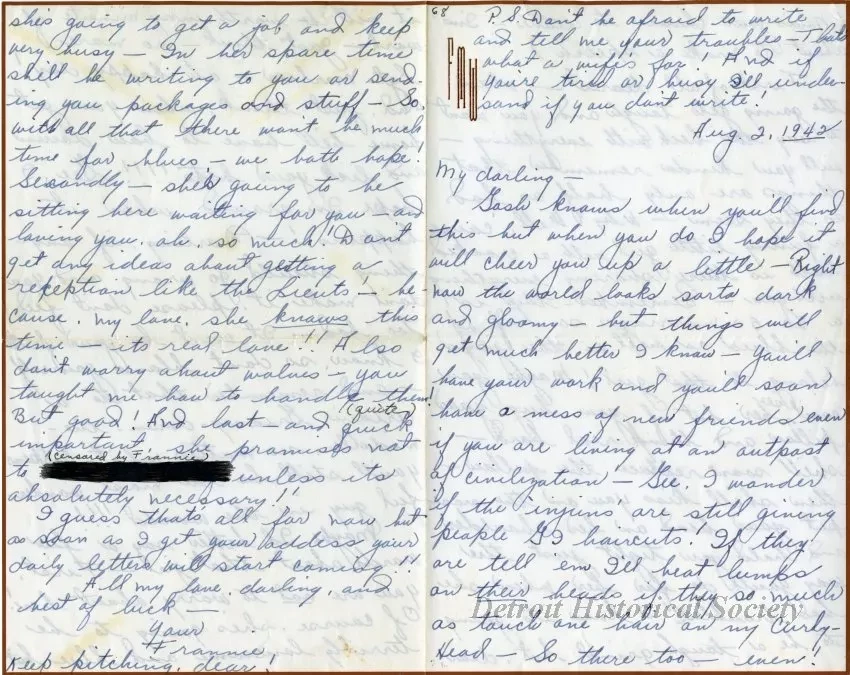 she's going to get a job and keep
very busy – In her spare time
she'll be writing to you or send-
ing you packages and stuff – So,
with all that there won't be much
time for blues – we both hope!
Secondly – she's going to be
sitting here waiting for you – and
loving you, oh, so much! Don't
get any ideas about getting a
reception like the Lieuts! – be-
cause, my love, she knows this
time – its real love!!! Also
don't worry about wolves – you
taught me how to handle them!
(quite)
But good! And last – and quick
important she promises not
(censored by Frannie)
to unless its
absolutely necessary!!
I guess that's all for now but
as soon as I get your address your
daily letters will start coming!!
All my love, darling, and
best of luck –
Your
Frannie
Keep pitching, dear!
68
P.S. Don't be afraid to write
and tell me your troubles – That's
what a wife's for! And if
you're tired or busy I'll under-
sand if you don't write!
Aug. 2, 1942
My darling –
Gosh knows when you'll find
this but when you do I hope it
will cheer you up a little – Right
now the world looks sorta dark
and gloomy – but things will
get much better I know – You'll
have your work and you'll soon
have a mess of new friends even
if you are living at an outpost
of civilization – Gee, I wonder
if the injuns are still giving
people GI haircuts! If they
are tell 'em I'll beat lumps
on their heads if they so much
as touch one hair on my Curly-
Head – So there too – even!
Detroit Historical Society